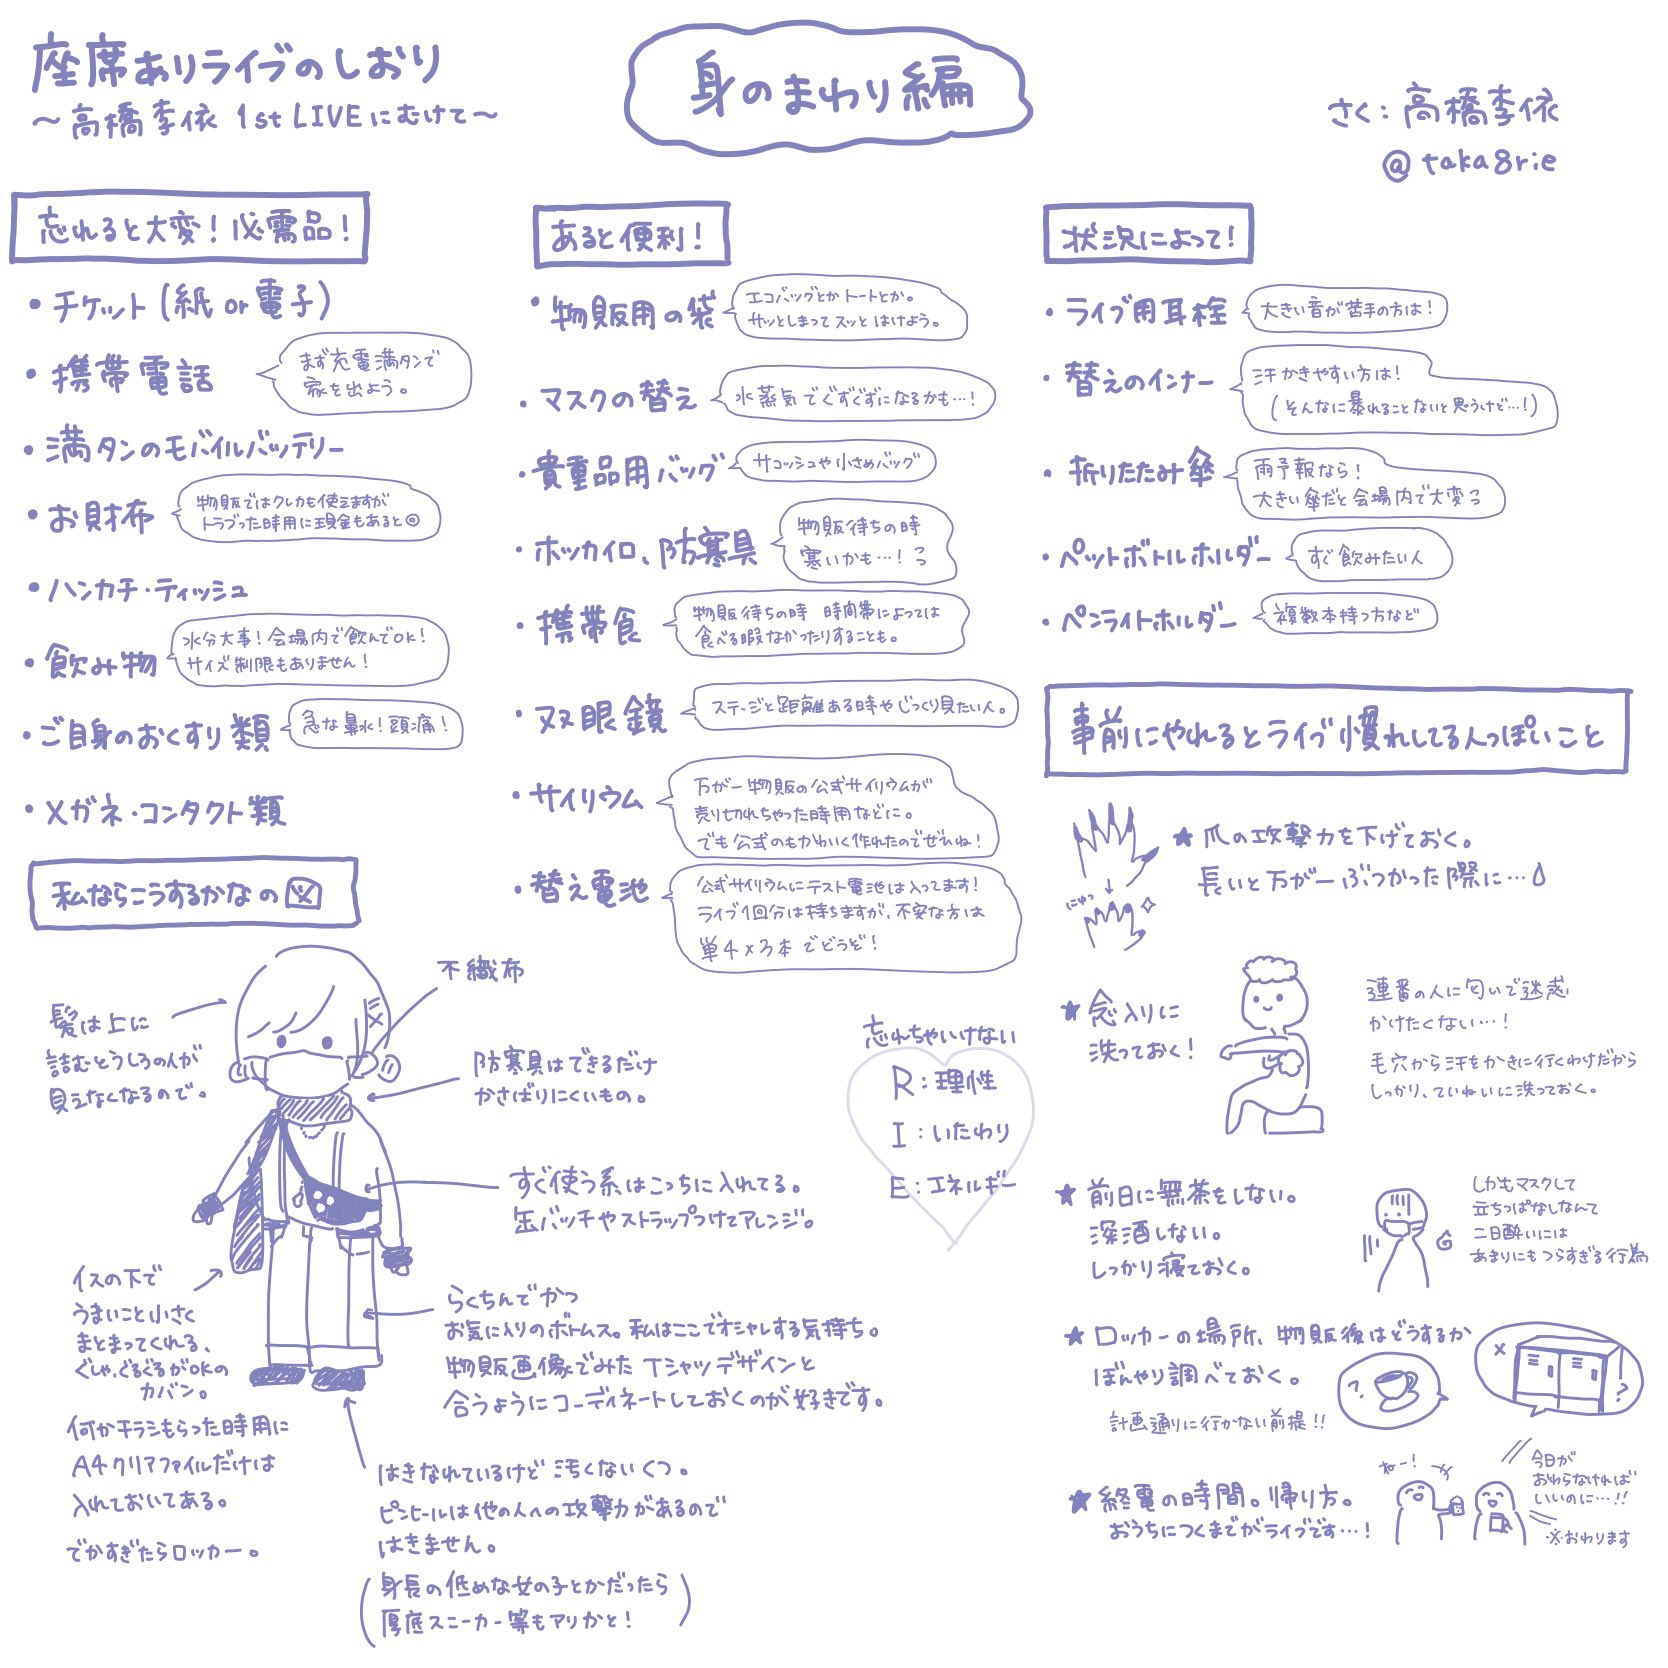 座席ありライブのしおり
～高橋李依 1st LIVEにむけて～
身のまわり編
さく：高橋李依
@taka8rie
忘れると大変！必需品！
・チケット（紙 or 電子）
・携帯電話
まず充電満タンで
家を出よう。
・満タンのモバイルバッテリー
・お財布
物販ではクレカも使えますが
トラブった時用に現金もあると◎
・ハンカチ・ティッシュ
・飲み物
水分大事！会場内で飲んでOK！
サイズ制限もありません！
・ご自身のおくすり類
急な鼻水！頭痛！
・メガネ・コンタクト類
あると便利！
・物販用の袋
エコバッグとかトートとか。
サッとしまってスッとはけよう。
・マスクの替え
水蒸気でぐずぐずになるかも…！
・貴重品用バッグ
サコッシュや小さめバッグ
・ホッカイロ、防寒具
物販待ちの時
寒いかも…！
・携帯食
物販待ちの時 時間帯によっては
食べる暇なかったりすることも。
・双眼鏡
ステージと距離ある時やじっくり見たい人。
・サイリウム
万が一物販の公式サイリウムが
売り切れちゃった時用などに。
でも公式のもかわいく作れたのでぜひね！
・替え電池
公式サイリウムにテスト電池は入ってます！
ライブ1回分は持ちますが、不安な方は
単4×3本でどうぞ！
状況によって！
・ライブ用耳栓
大きい音が苦手の方は！
・替えのインナー
汗かきやすい方は！
（そんなに暴れることないと思うけど…！）
・折りたたみ傘
雨予報なら！
大きい傘だと会場内で大変っ
・ペットボトルホルダー
すぐ飲みたい人
・ペンライトホルダー
複数本持つ方など
事前にやれるとライブ慣れしてる人っぽいこと
★爪の攻撃力を下げておく。
長いと万が一ぶつかった際に…
にゃっ
★念入りに
洗っておく！
連番の人に匂いで迷惑
かけたくない…！
毛穴から汗をかきに行くわけだから
しっかり、ていねいに洗っておく。
★前日に無茶をしない。
深酒しない。
しっかり寝ておく。
しかもマスクして
立ちっぱなしなんて
二日酔いには
あまりにもつらすぎる行為
★ロッカーの場所、物販後はどうするか
ぼんやり調べておく。
計画通りに行かない前提!!
?
★終電の時間。帰り方。
おうちにつくまでがライブです…！
ねー！
今日が
おわらなければ
いいのに…!!
※おわります
私ならこうするかなの図
髪は上に
詰むとうしろの人が
見えなくなるので。
不織布
防寒具はできるだけ
かさばりにくいもの。
すぐ使う系はこっちに入れてる。
缶バッチやストラップつけてアレンジ。
イスの下で
うまいこと小さく
まとまってくれる、
ぐしゃぐるぐるがOKの
カバン。
何かチラシもらった時用に
A4クリアファイルだけは
入れておいてある。
でかすぎたらロッカー。
らくちんでかつ
お気に入りのボトムス。私はここでオシャレする気持ち。
物販画像でみたTシャツデザインと
合うようにコーディネートしておくのが好きです。
はきなれているけど汚くないくつ。
ピンヒールは他の人への攻撃力があるので
はきません。
（身長の低めな女の子とかだったら
厚底スニーカー等もアリかと！）
忘れちゃいけない
R：理性
I：いたわり
E：エネルギー